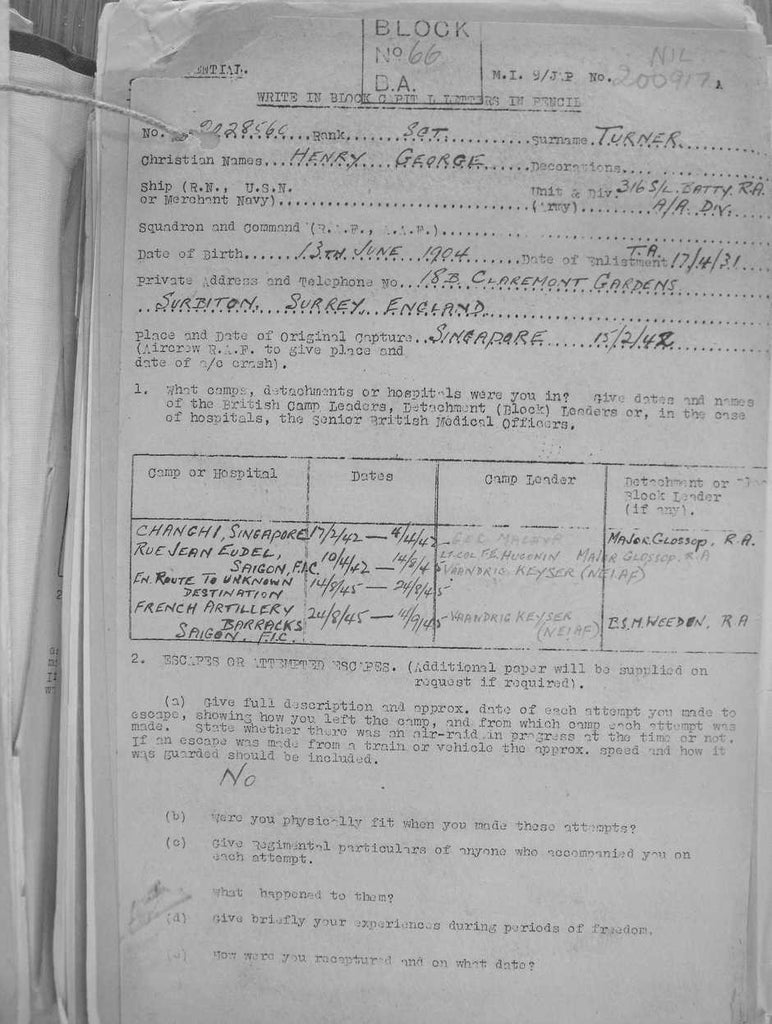 BLOCK
No 66
D.A.
ENTIAL.
M.I. 9/JAP No. NIL 200917
WRITE IN BLOCK CAPITAL LETTERS IN PENCIL
No. Rank....SGT........Surname.TURNER
Christian Names...HENRY...GEORGE....Decorations....
Ship (R.N., U.S.N. Unit & Div. 316 S/L. BATTY. R.A.
or Merchant Navy)............(Army)....A/A. DIV.
Squadron and Command (R.A.F., A.A.F.)............
T.A.
Date of Birth....13TH JUNE 1904....Date of Enlistment 17/4/31
Private Address and Telephone No...18B CLAREMONT GARDENS
..SURBITON...SURREY...ENGLAND............
Place and Date of Original Capture..SINGAPORE....15/2/42
(Aircrew R.A.F. to give place and
date of a/c crash).
1. What camps, detachments or hospitals were you in? Give dates and names
of the British Camp Leaders, Detachment (Block) Leaders or, in the case
of hospitals, the Senior British Medical Officers.
Camp or Hospital Dates Camp Leader Detachment or
Block Leader
(if any).
CHANGHI, SINGAPORE 17/2/42 — 4/4/42 MAJOR. GLOSSOP. R.A.
RUE JEAN EUDEL, LT. COL. F.E. HUGONIN MAJOR GLOSSOP. R.A
SAIGON, F.I.C. 10/4/42 — 14/8/45 VAANDRIG KEYSER (NEIAF)
EN. ROUTE TO UNKNOWN 14/8/45 — 24/8/45
DESTINATION
FRENCH ARTILLERY 24/8/45 — VAANDRIG KEYSER B.S.M. WEEDON, R.A
BARRACKS (NEIAF)
SAIGON. F.I.C.
2. ESCAPES OR ATTEMPTED ESCAPES. (Additional paper will be supplied on
request if required).
(a) Give full description and approx. date of each attempt you made to
escape, showing how you left the camp, and from which camp each attempt was
made. State whether there was an air-raid in progress at the time or not.
If an escape was made from a train or vehicle the approx. speed and how it
was guarded should be included.
NO
(b) Were you physically fit when you made these attempts?
(c) Give Regimental particulars of anyone who accompanied you on
each attempt.
What happened to them?
(d) Give briefly your experiences during periods of freedom.
(e) How were you recaptured and on what date?